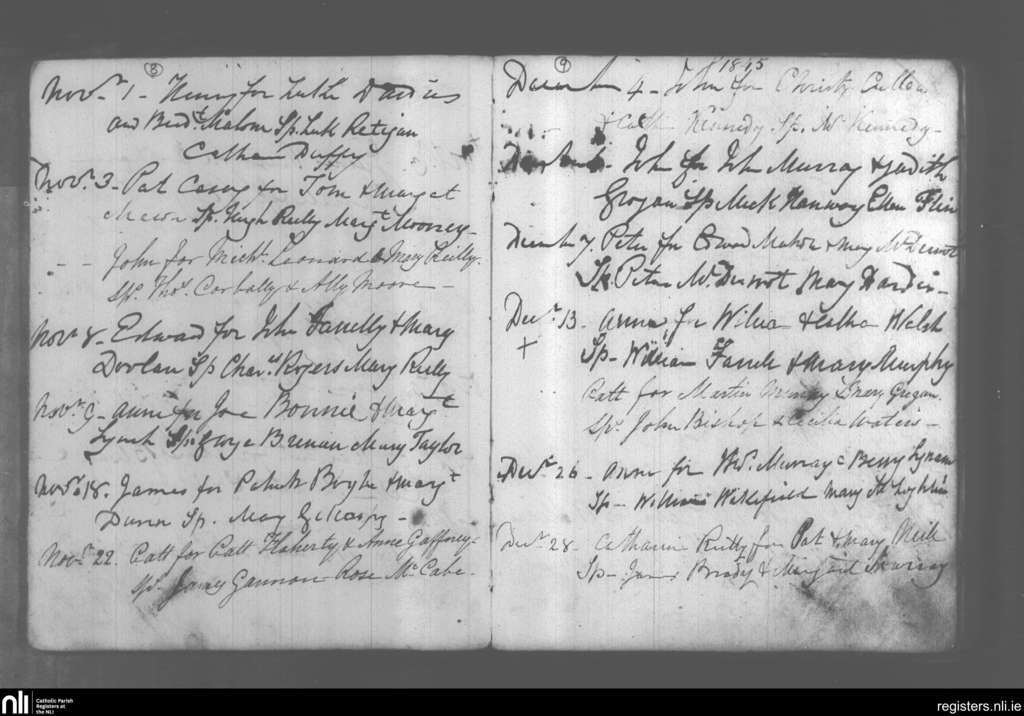 8
Novr. 1 - Henry for Luke Davis
and Bedt. Malom Sp. Luk Retigan
Cathan Duffy
Novr. 3 - Pat Casey for Tom & Margat
Sp. Hugh Reilly Margt Mooney -
- - John for Michl. Leonard & Mary Reilly.
Sp. Thos. Corbally & Ally Moore -
Novr 8 - Edward for John Farrelly & Mary
Doolan Sp Chars. Rogers Mary Reilly
Novr. 9 - Anne for Joe Bonnie & Margt
Lynch Sp. George Brenan Mary Taylor
Novr. 18. James for Patrick Boyle & Margt
Dunn Sp. Mary Gilleaspy -
Novr. 22. Catt for Patt Flaherty & Anne Gaffney -
Sp. Jamey Gannon Rose Mc Cabe -
9
1815
December 4 - John for Christy Cullen
& Cath Kennedy. Sp. Kennedy -
John for John Murray & Judith
Grogan Sp Mick Hanway Ellen Flin
Decemb 7. Peter for Edward Mahon & Mary McDermot
Sp. Peter McDermot Mary Hardin -
Decr. 13. Anne for William & Catha Welsh
+ Sp - William Farrell & Mary Murphy
Catt for Martin Murray & Mary Grogan.
Sp. John Bishop & Cecilia Waters -
Decr. 26 - Anne for Thos. Murray & Benny Lynam
Sp - William Wakefield Mary McLoghlin
Decr. 28 - Catharine Reilly for Pat & Mary Neill
Sp - James Brady & Margaret Murray
nli
Catholic Parish
Registers at
the NLI
registers.nli.ie